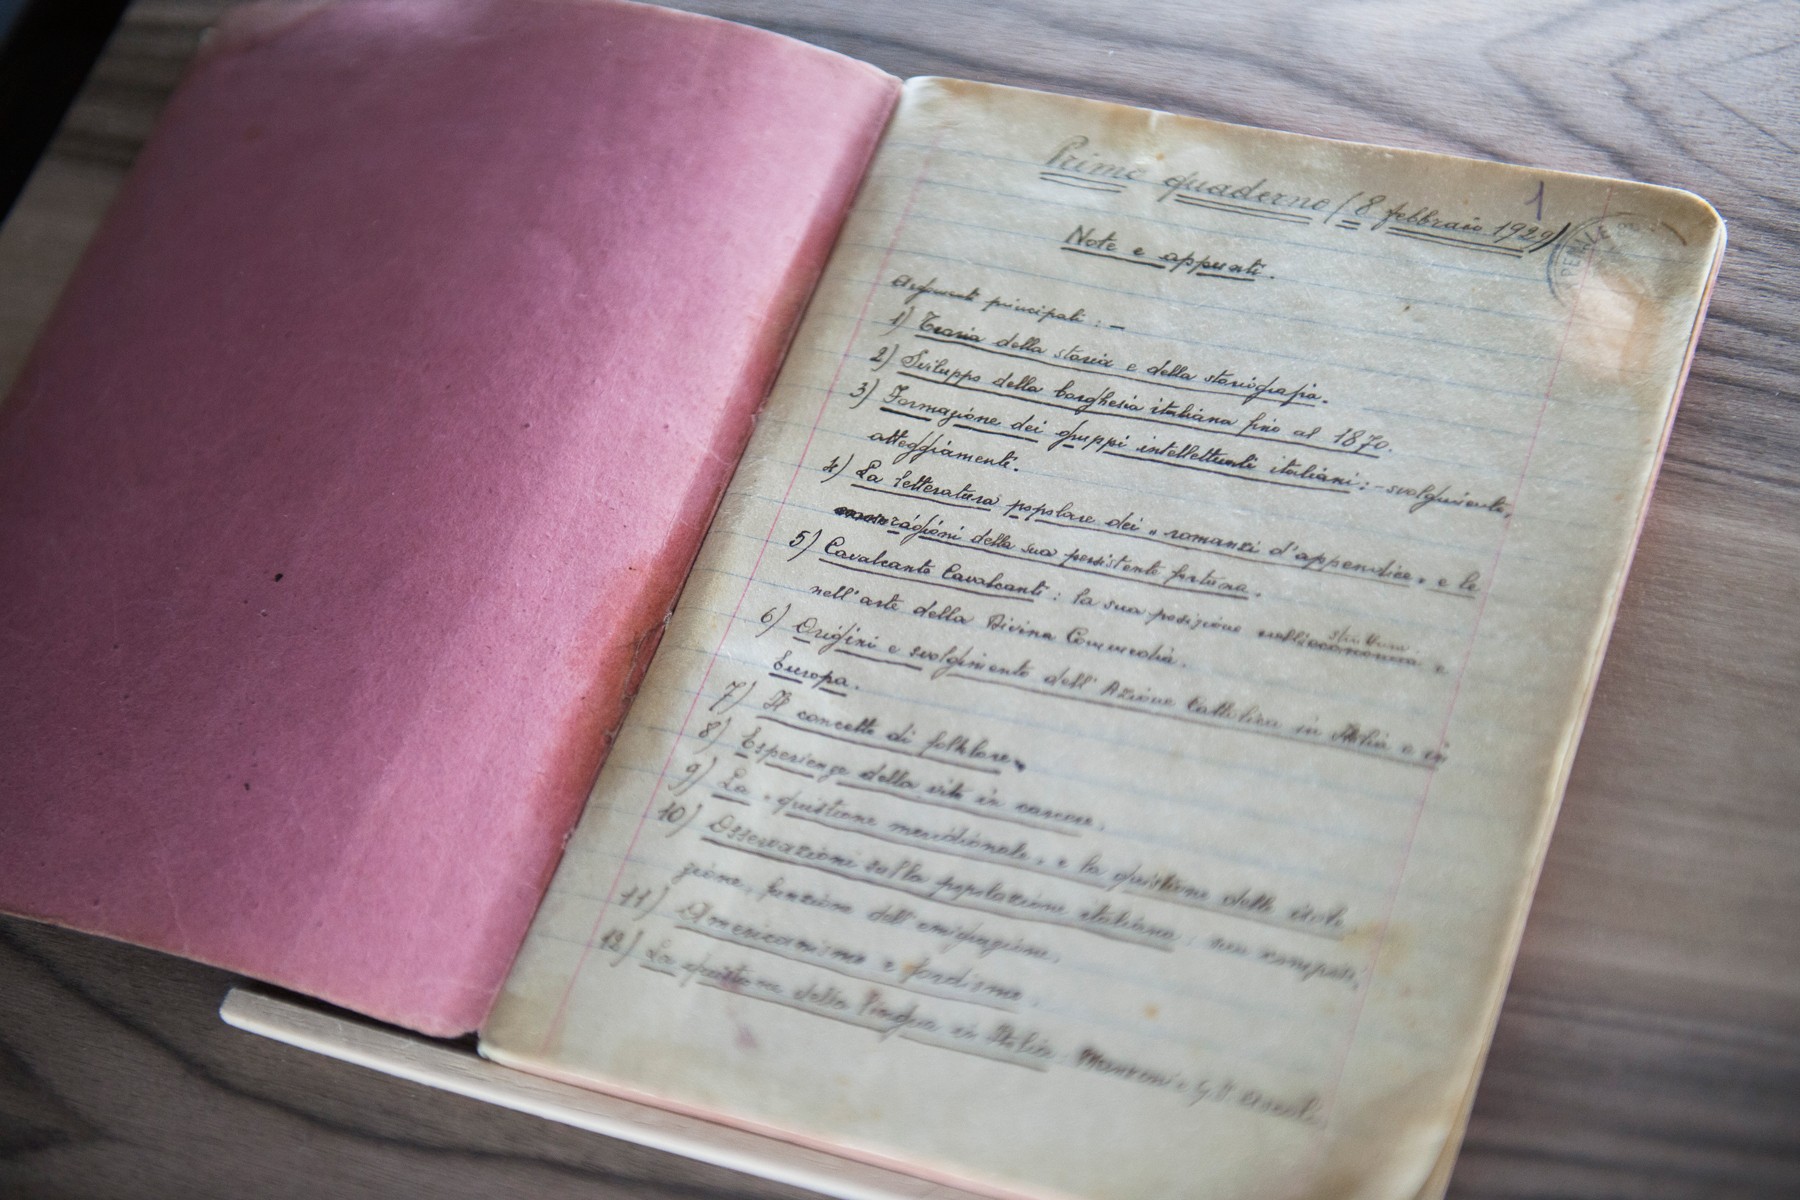 1
Primo quaderno (8 febbraio 1929)
PENALE
Note e appunti.
Argomenti principali : —
1) Teoria della storia e della storiografia.
2) Sviluppo della borghesia italiana fino al 1870.
3) Formazione dei gruppi intellettuali italiani : - svolgimento,
atteggiamenti.
4) La letteratura popolare dei "romanzi d'appendice" e le
ragioni della sua persistente fortuna.
5) Cavalcante Cavalcanti : la sua posizione nella struttura e
nell'arte della Divina Commedia.
6) Origini e svolgimento dell'Azione Cattolica in Italia e in
Europa.
7) Il concetto di folklore.
8) Esperienze della vita in carcere.
9) La "quistione meridionale" e la quistione delle isole.
10) Osservazioni sulla popolazione italiana : sua composi-
zione, funzione dell'emigrazione.
11) Americanismo e fordismo.
12) La quistione della lingua in Italia : Manzoni e G. I. Ascoli.